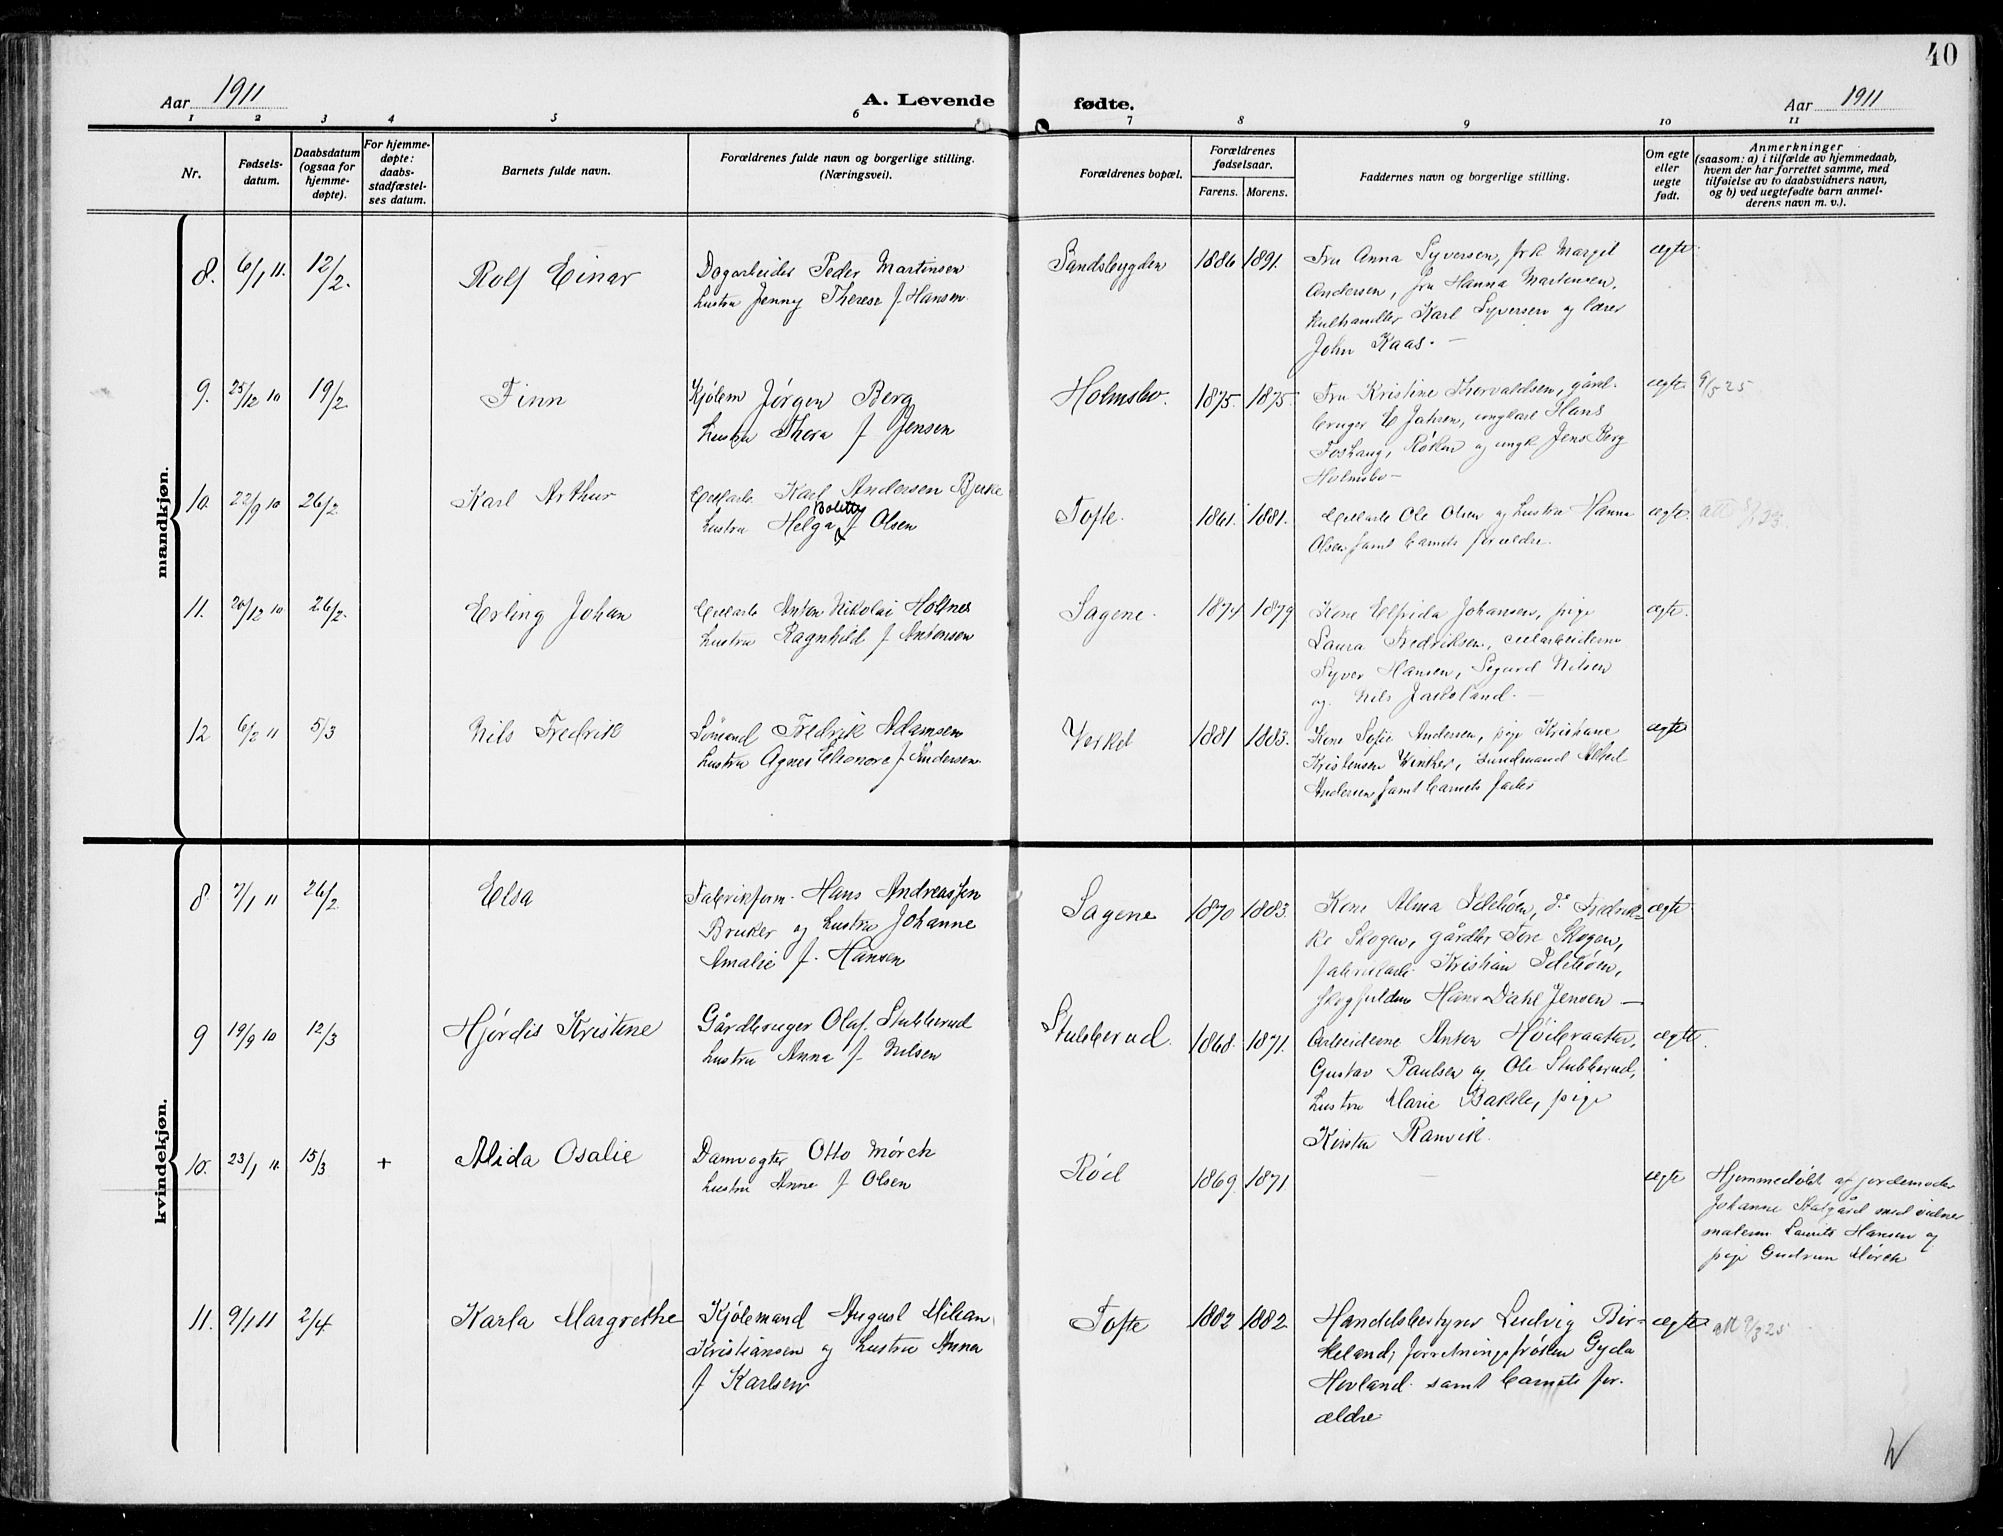 40
Aar 1911
A. Levende fødte.
Aar 1911
1 2 3 4 5 6 7 8 9 10 11
Nr.
Fødsels-
datum.
Daabsdatum
(ogsaa for
hjemme-
døpte).
For hjemme-
døpte:
daabs-
stadfæstel-
ses datum.
Barnets fulde navn.
Forældrenes fulde navn og borgerlige stilling.
(Næringsvei).
Forældrenes bopæl.
Forældrenes
fødselsaar.
Farens. Morens.
Faddernes navn og borgerlige stilling.
Om egte
eller
uegte
født.
Anmerkninger
(saasom: a) i tilfælde av hjemmedaab,
hvem der har forrettet samme, med
tilføielse av to daabsvidners navn,
og b) ved uegtefødte barn anmel-
derens navn m. v.).
mandkjøn.
8. 6/1 11. 12/2. Rolf Einar
Dagarbeider Peder Martinsen
Hustru Jenny Therese f. Hansen.
Sandsbygden 1886 1891.
Fru Anna Syversen, frk Margit
Andersen, fru Hanna Martensen,
kulhandler Karl Syversen og lærer
John Kaas. —
ægte
9. 25/12 10 19/2 Finn
Kjølem Jørgen Berg
hustru Thora f Jensen
Holmsbo. 1875. 1875.
Fru Kristine Thorvaldsen, gård-
bruger E Jahsen, ungkarl Hans
Foshaug, Røken og ungk Jens Berg
Holmsbo —
ægte 9/5 25
10. 22/9 10 26/2 Karl Arthur
Cellarb Karl Andersen Bjerke
Bolette
hustru Helga f Olsen
Tofte. 1861. 1881.
Cellarb Ole Olsen og hustru Hanna
Olsen samt barnets forældre.
ægte. att
11. 20/12 10 26/2. Erling Johan
Cellarb Anton Nikolai Holtnes
hustru Ragnhild f Antonsen
Sagene. 1874 1879
Kone Elfrida Johansen, pige
Laura Fredriksen, cellarbeiderne
Syver Hansen, Sigurd Nilsen
og Nils Jaksland. —
ægte.
12 6/2 11 5/3 Nils Fredrik
Sømand Fredrik Adamsen
hustru Agnes Elionore f Andersen.
Verket 1881 1883.
Kone Sofie Andersen, pige Kristiane
Kristensen Vinker, Sundmand Alfred
Andersen, samt barnets fader
ægte
kvindekjøn.
8 7/1 11 26/2 Elsa
Fabrikform. Hans Andreassen
Bruker og hustru Johanne
Amalie f. Hansen
Sagene 1870 1883.
Kone Alma Idehoen, do Fredrik-
ke Skogen, gårdbr Tore Skogen,
fabrikarb Kristian Idehoen,
Hans Dahl Jensen —
ægte
9 19/9 10 12/3 Hjørdis Kristine
Gårdbruger Olaf Stubberud
hustru Anna f. Nilsen
Stubberud. 1868. 1871.
Arbeiderne Anton Høibraaten,
Gustav Paulsen og Ole Stubberud,
hustru Marie Bakke, pige
Kirsten Ranvik.
ægte.
10. 23/1 11 15/3 + Alida Osalie
Damvogter Otto Mørch
hustru Anne f Olsen
Rød 1869. 1871. —
ægte
Hjemmedøbt af jordemoder
Johanne Stalgård med vidner
malerm Laurits Hansen og
pige Gudrun Mørch
11. 9/1 11 2/4 Karla Margrethe
Kjølemand August Milian
Kristiansen og hustru Anna
f Karlsen
Tofte 1882 1882.
Handelsbestyrer Ludvig Bir-
keland, forretningsfrøken Gyda
Hovland. samt barnets for-
ældre
ægte att 9/3 25